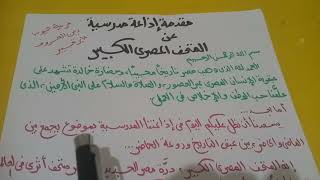 مقدمة إذاعة مدرسية
عن
المتحف المصري الكبير
بسم الله الرحمن الرحيم
الحمد لله الذي وهب مصر تاريخاً مجيداً، وحضارة خالدة تشهد على
الإنسان المصري عبر العصور، والصلاة والسلام على النبي الأمين، الذي
علّمنا حب الوطن والإخلاص في العمل
أما بعد..
يسعدنا أن نطل عليكم اليوم في إذاعتنا المدرسية بموضوع يجمع بين
الماضي والحاضر، وبين عبق التاريخ وروعة الحاضر..
إنه المتحف المصري الكبير، درة مصر الجديدة، متحف أثري في العالم